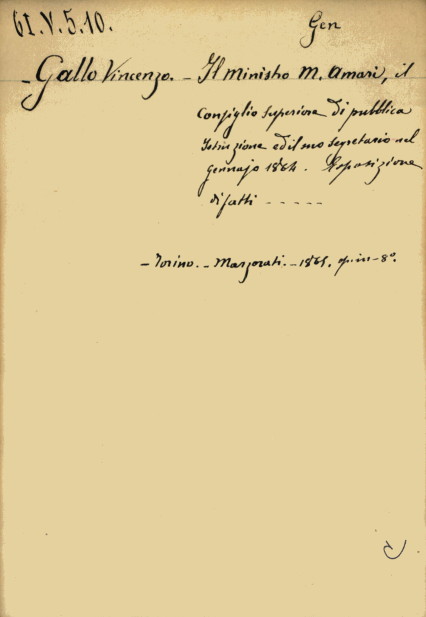 61.V.5.10.
Gen
Gallo Vincenzo. - Il ministro M. Amari, il
Consiglio superiore di pubblica
Istruzione ed il suo segretario nel
gennajo 1864. Esposizione
di fatti - - - - -
- Torino. - Marzorati. - 1865. in - 8º.